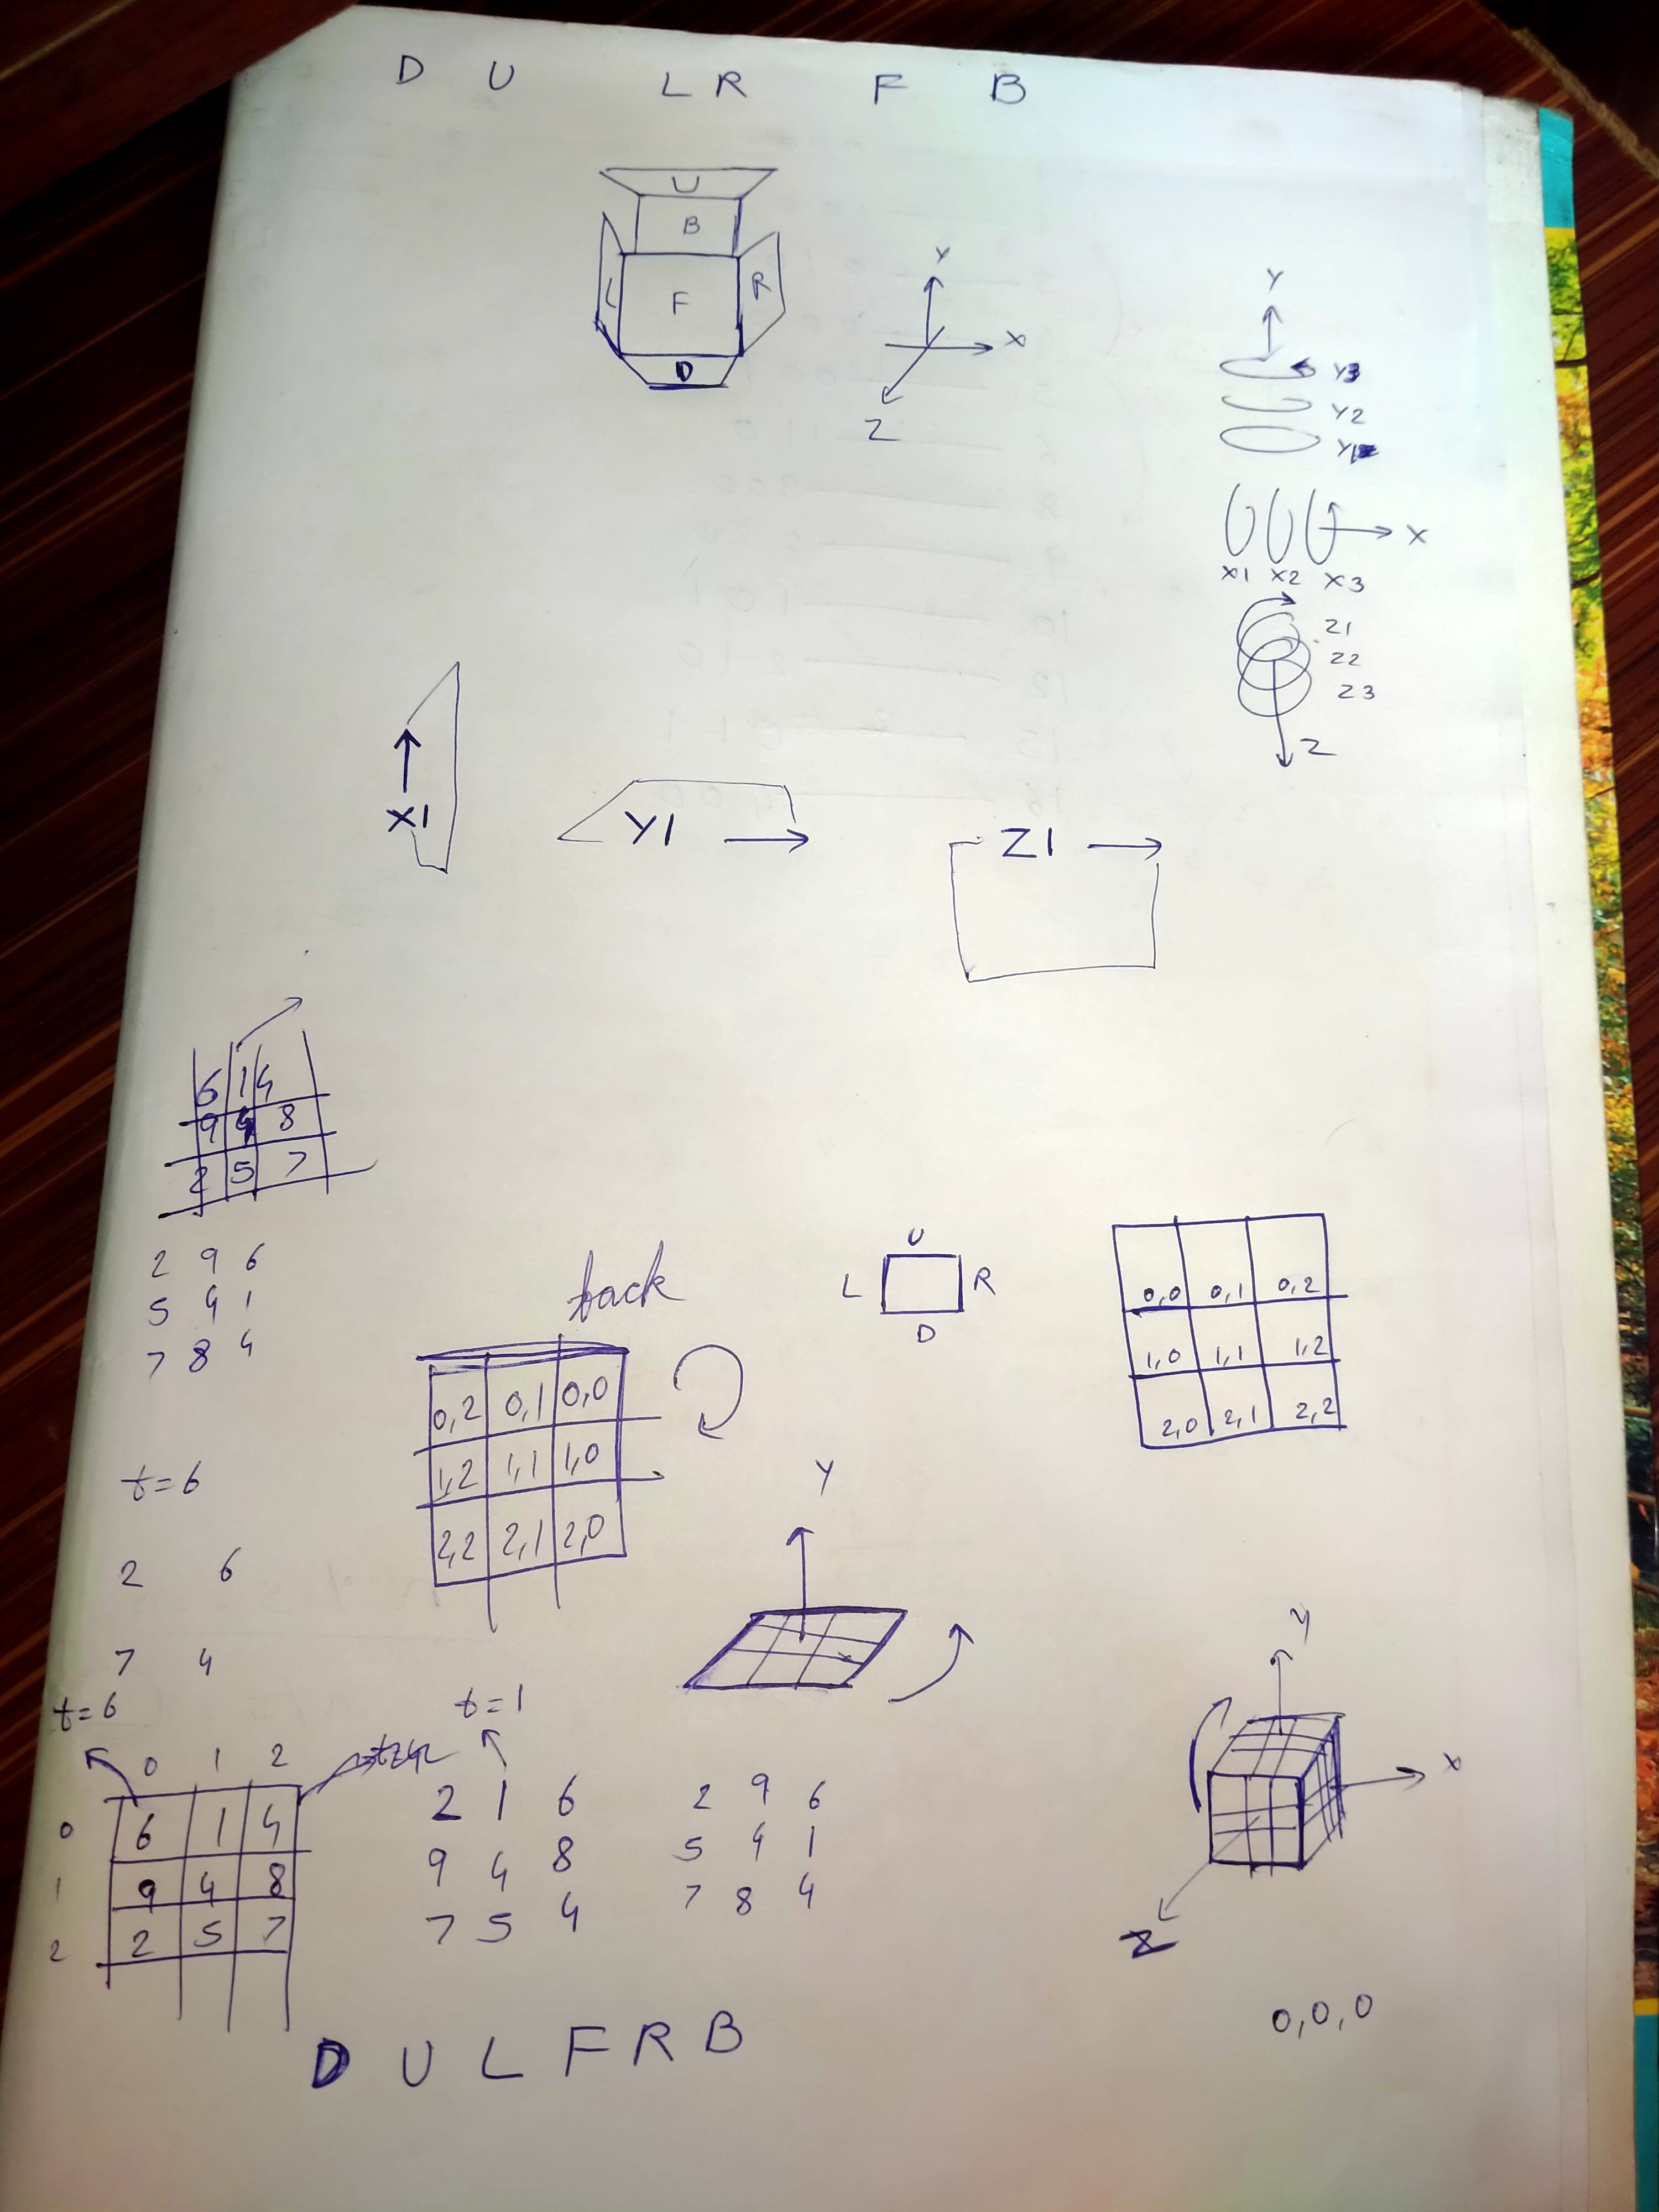 D U L R F B
U
B
L F R
D
Y
X
Z
Y
Y3
Y2
Y1
X
X1 X2 X3
Z1
Z2
Z3
Z
X1
Y1
Z1
6 1 4
9 4 8
2 5 7
2 9 6
5 4 1
7 8 4
back
0,2 0,1 0,0
1,2 1,1 1,0
2,2 2,1 2,0
U
L R
D
0,0 0,1 0,2
1,0 1,1 1,2
2,0 2,1 2,2
t=6
2 6
7 4
Y
t=6
t=1
0 1 2
0 6 1 4
1 9 4 8
2 2 5 7
2 1 6
9 4 8
7 5 4
2 9 6
5 4 1
7 8 4
y
x
Z
0,0,0
D U L F R B